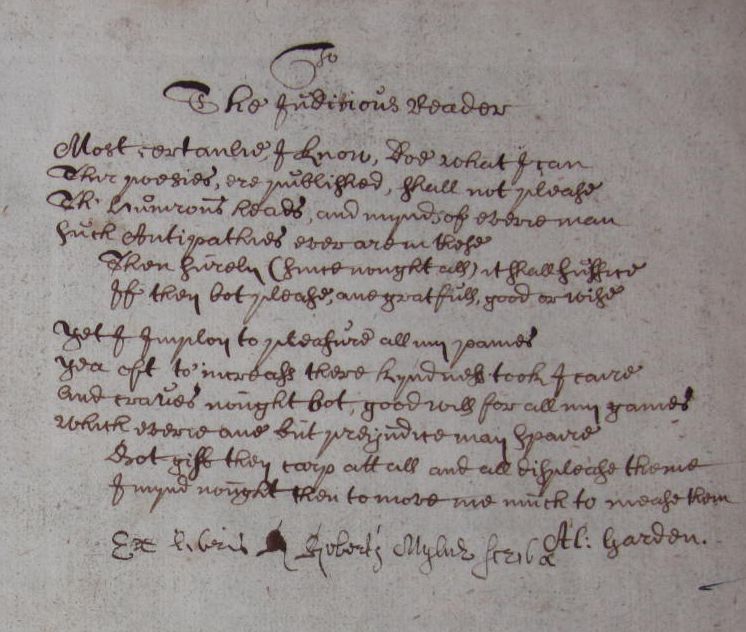 To
The Juditious Reader
Most certanlie, I know, Doe what I can
Thir poesies, ere published, shall not please
The humrous heads, and mynds of everie man
such Antipathies ever are in these
Then surely (since nought all) it shall suffice
If they bot please, ane gratfull, good or wise
Yet I Imploy to pleasure all my paines
Yea oft to increass there kyndness took I caire
And craves nought bot, good will for all my gaines
Which everie ane but prejudice may spaire
Bot giff they carp att all and all displease theme
I mynd nought then to more me much to mease them
Ex Libris Roberti Myln Scriba
Al: Garden.